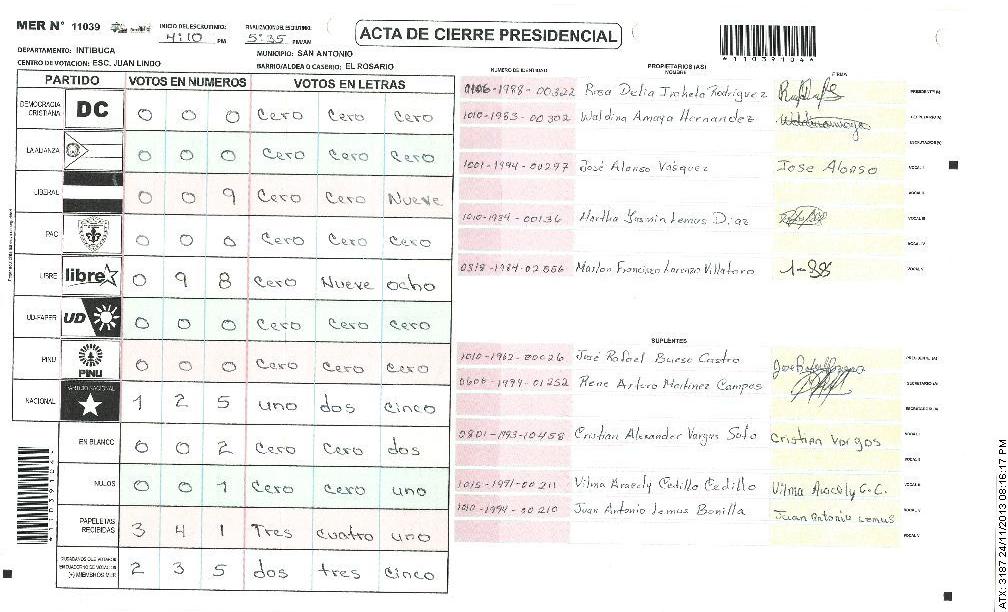 MER N° 11039
INICIO DEL ESCRUTINIO: 4:10 PM
FINALIZACION DEL ESCRUTINIO: 5:35 PM/AM
ACTA DE CIERRE PRESIDENCIAL
*110391044*
DEPARTAMENTO: INTIBUCA
MUNICIPIO: SAN ANTONIO
CENTRO DE VOTACION: ESC. JUAN LINDO
BARRIO/ALDEA O CASERIO: EL ROSARIO
PARTIDO VOTOS EN NUMEROS VOTOS EN LETRAS
DEMOCRACIA CRISTIANA DC 0 0 0 Cero Cero Cero
LA ALIANZA 0 0 0 Cero Cero Cero
LIBERAL 0 0 9 Cero Cero Nueve
PAC 0 0 0 Cero Cero Cero
LIBRE libre 0 9 8 Cero Nueve ocho
UD-FAPER UD 0 0 0 Cero Cero Cero
PINU PINU 0 0 0 Cero Cero Cero
NACIONAL PARTIDO NACIONAL 1 2 5 uno dos cinco
EN BLANCO 0 0 2 Cero Cero dos
NULOS 0 0 1 Cero Cero uno
PAPELETAS RECIBIDAS 3 4 1 Tres cuatro uno
CIUDADANOS QUE VOTARON EN CUADERNO DE VOTACION (+) MIEMBROS MER 2 3 5 dos tres cinco
NUMERO DE IDENTIDAD PROPIETARIOS (AS) NOMBRE FIRMA
0106-1988-00322 Rosa Delia Isabela Rodriguez PRESIDENTE (A)
1010-1983-00302 Waldina Amaya Hernandez SECRETARIO (A)
ESCRUTADOR (A)
1001-1994-00297 José Alonso Vásquez Jose Alonso VOCAL I
VOCAL II
1010-1984-00136 Martha Yasmin Lemus Diaz VOCAL III
VOCAL IV
0318-1984-02556 Marlon Francisco Lorenzo Villatoro VOCAL V
SUPLENTES
1010-1962-00026 José Rafael Bueso Castro PRESIDENTE (A)
0606-1994-01252 Rene Arturo Martinez Campos SECRETARIO (A)
ESCRUTADOR (A)
0801-1993-10458 Cristian Alexander Vargas Soto Cristian Vargas VOCAL I
VOCAL II
1015-1971-00211 Vilma Aracely Cedillo Cedillo Vilma Aracely C.C.
1010-1994-00210 Juan Antonio Lemus Bonilla Juan Antonio Lemus
VOCAL V
ATX: 3187 24/11/2013 08:16:17 PM